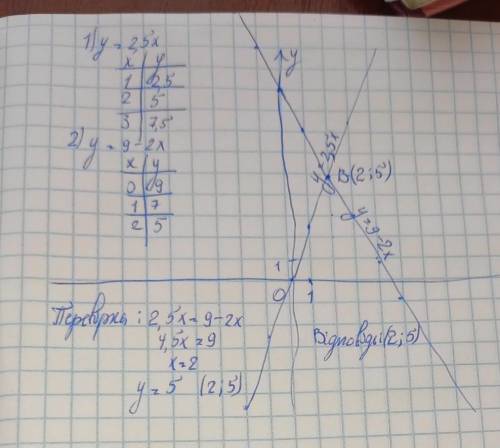 1) y = 2,5x
x | y
1 | 2,5
2 | 5
3 | 7,5
2) y = 9-2x
x | y
0 | 9
1 | 7
2 | 5
y
y=2,5x
B(2;5)
y=9-2x
1
0
1
Перевірка: 2,5x=9-2x
4,5x=9
x=2
y=5 (2;5)
Відповідь:(2;5)